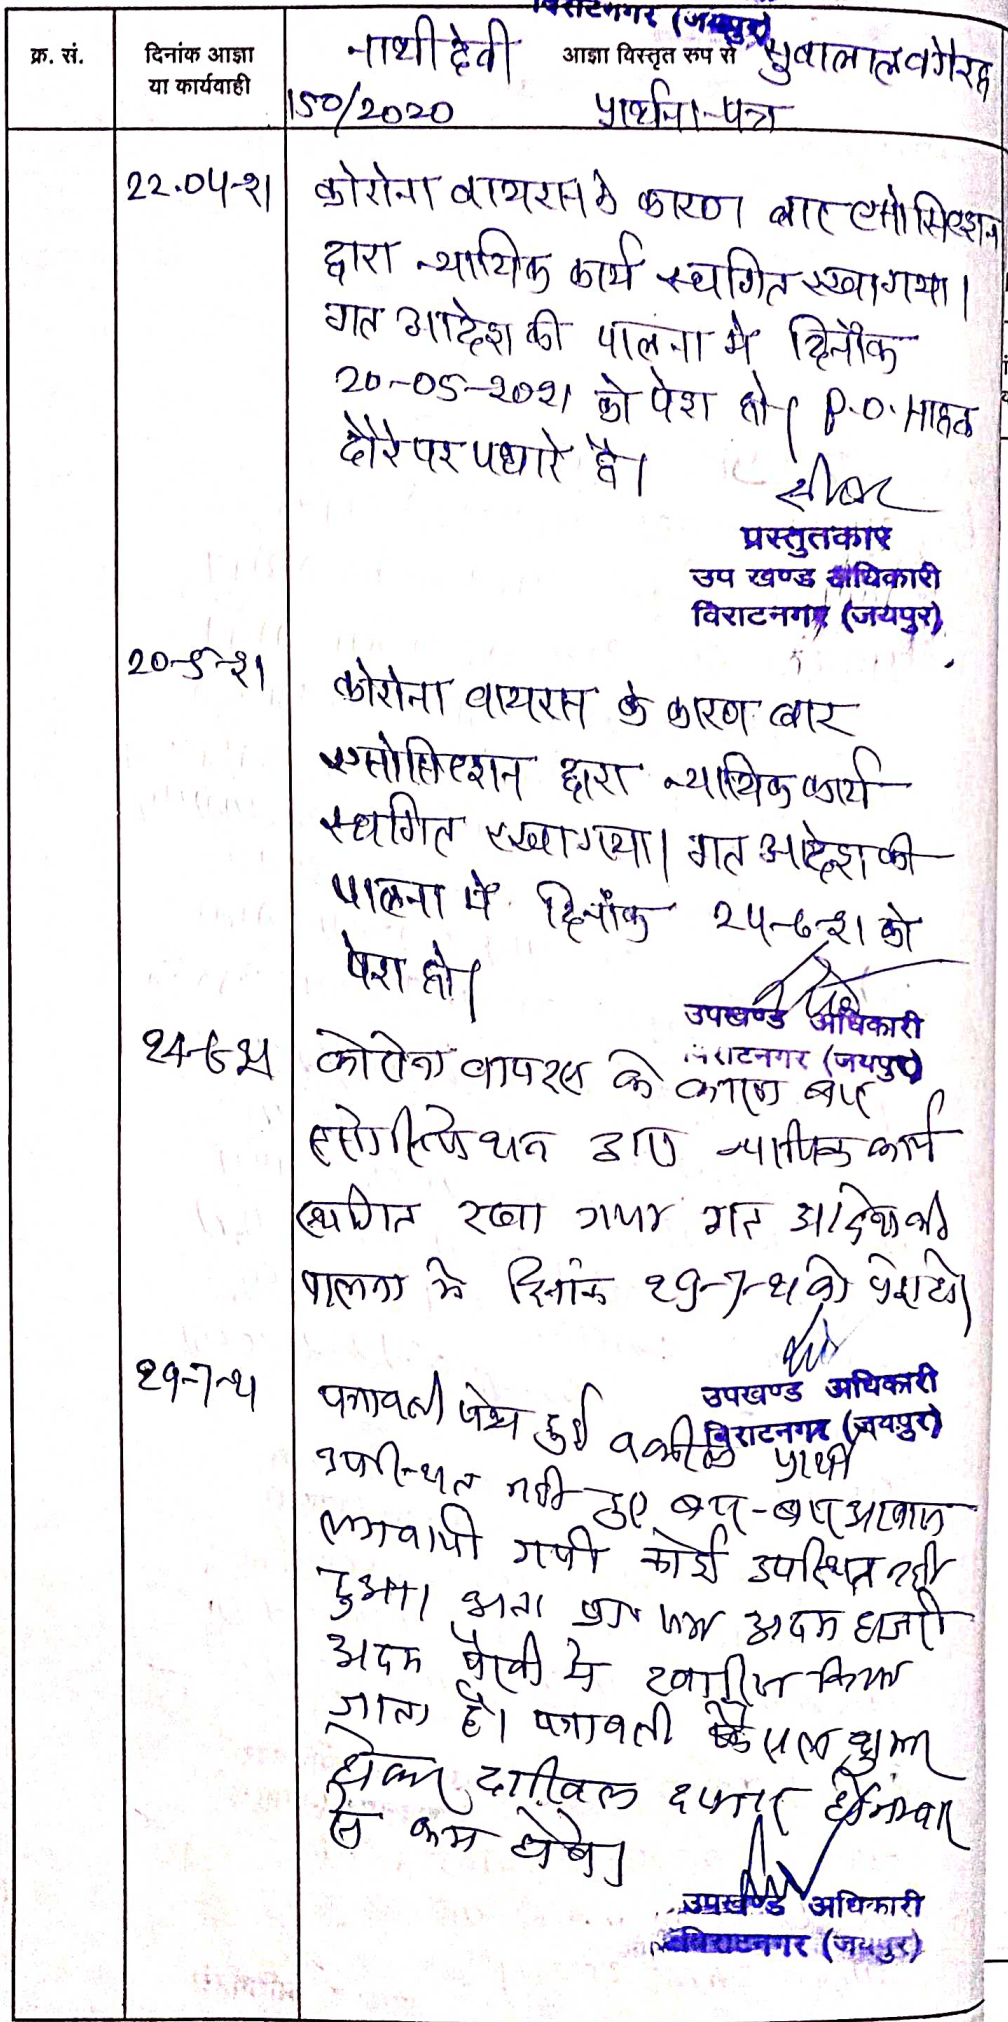 विराटनगर (जयपुर)
क्र. सं. दिनांक आज्ञा या कार्यवाही नाथी देवी आज्ञा विस्तृत रूप से सुवालाल वगैरह
150/2020 प्रार्थना-पत्र
22.04-21 कोरोना वायरस के कारण बार एसोसिएशन
द्वारा न्यायिक कार्य स्थगित रखा गया।
गत आदेश की पालना मे दिनाँक
20-05-2021 को पेश हो। P.O. साहब
दौरे पर पधारे है।
प्रस्तुतकार
उप खण्ड अधिकारी
विराटनगर (जयपुर)
20-5-21
कोरोना वायरस के कारण बार
एसोसिएशन द्वारा न्यायिक कार्य
स्थगित रखा गया। गत आदेश की
पालना मे दिनाँक 24-6-21 को
पेश हो।
उपखण्ड अधिकारी
विराटनगर (जयपुर)
24-6-21 कोरोना वायरस के कारण बार
एसोसिएशन द्वारा न्यायिक कार्य
स्थगित रखा गया गत आदेश की
पालना मे दिनांक 29-7-21 को पेश हो।
उपखण्ड अधिकारी
विराटनगर (जयपुर)
29-7-21 पत्रावली पेश हुई वकील प्रार्थी
उपस्थित नही हुए बार-बार आवाज
लगवायी गयी कोई उपस्थित नही
हुआ। अतः प्रा० पत्र अदम हाजरी
अदम पैरवी मे खारीज किया
जाता है। पत्रावली फैसल शुमार
होकर दाखिल दफ्तर हो नम्बर
से कम होवे।
उपखण्ड अधिकारी
विराटनगर (जयपुर)